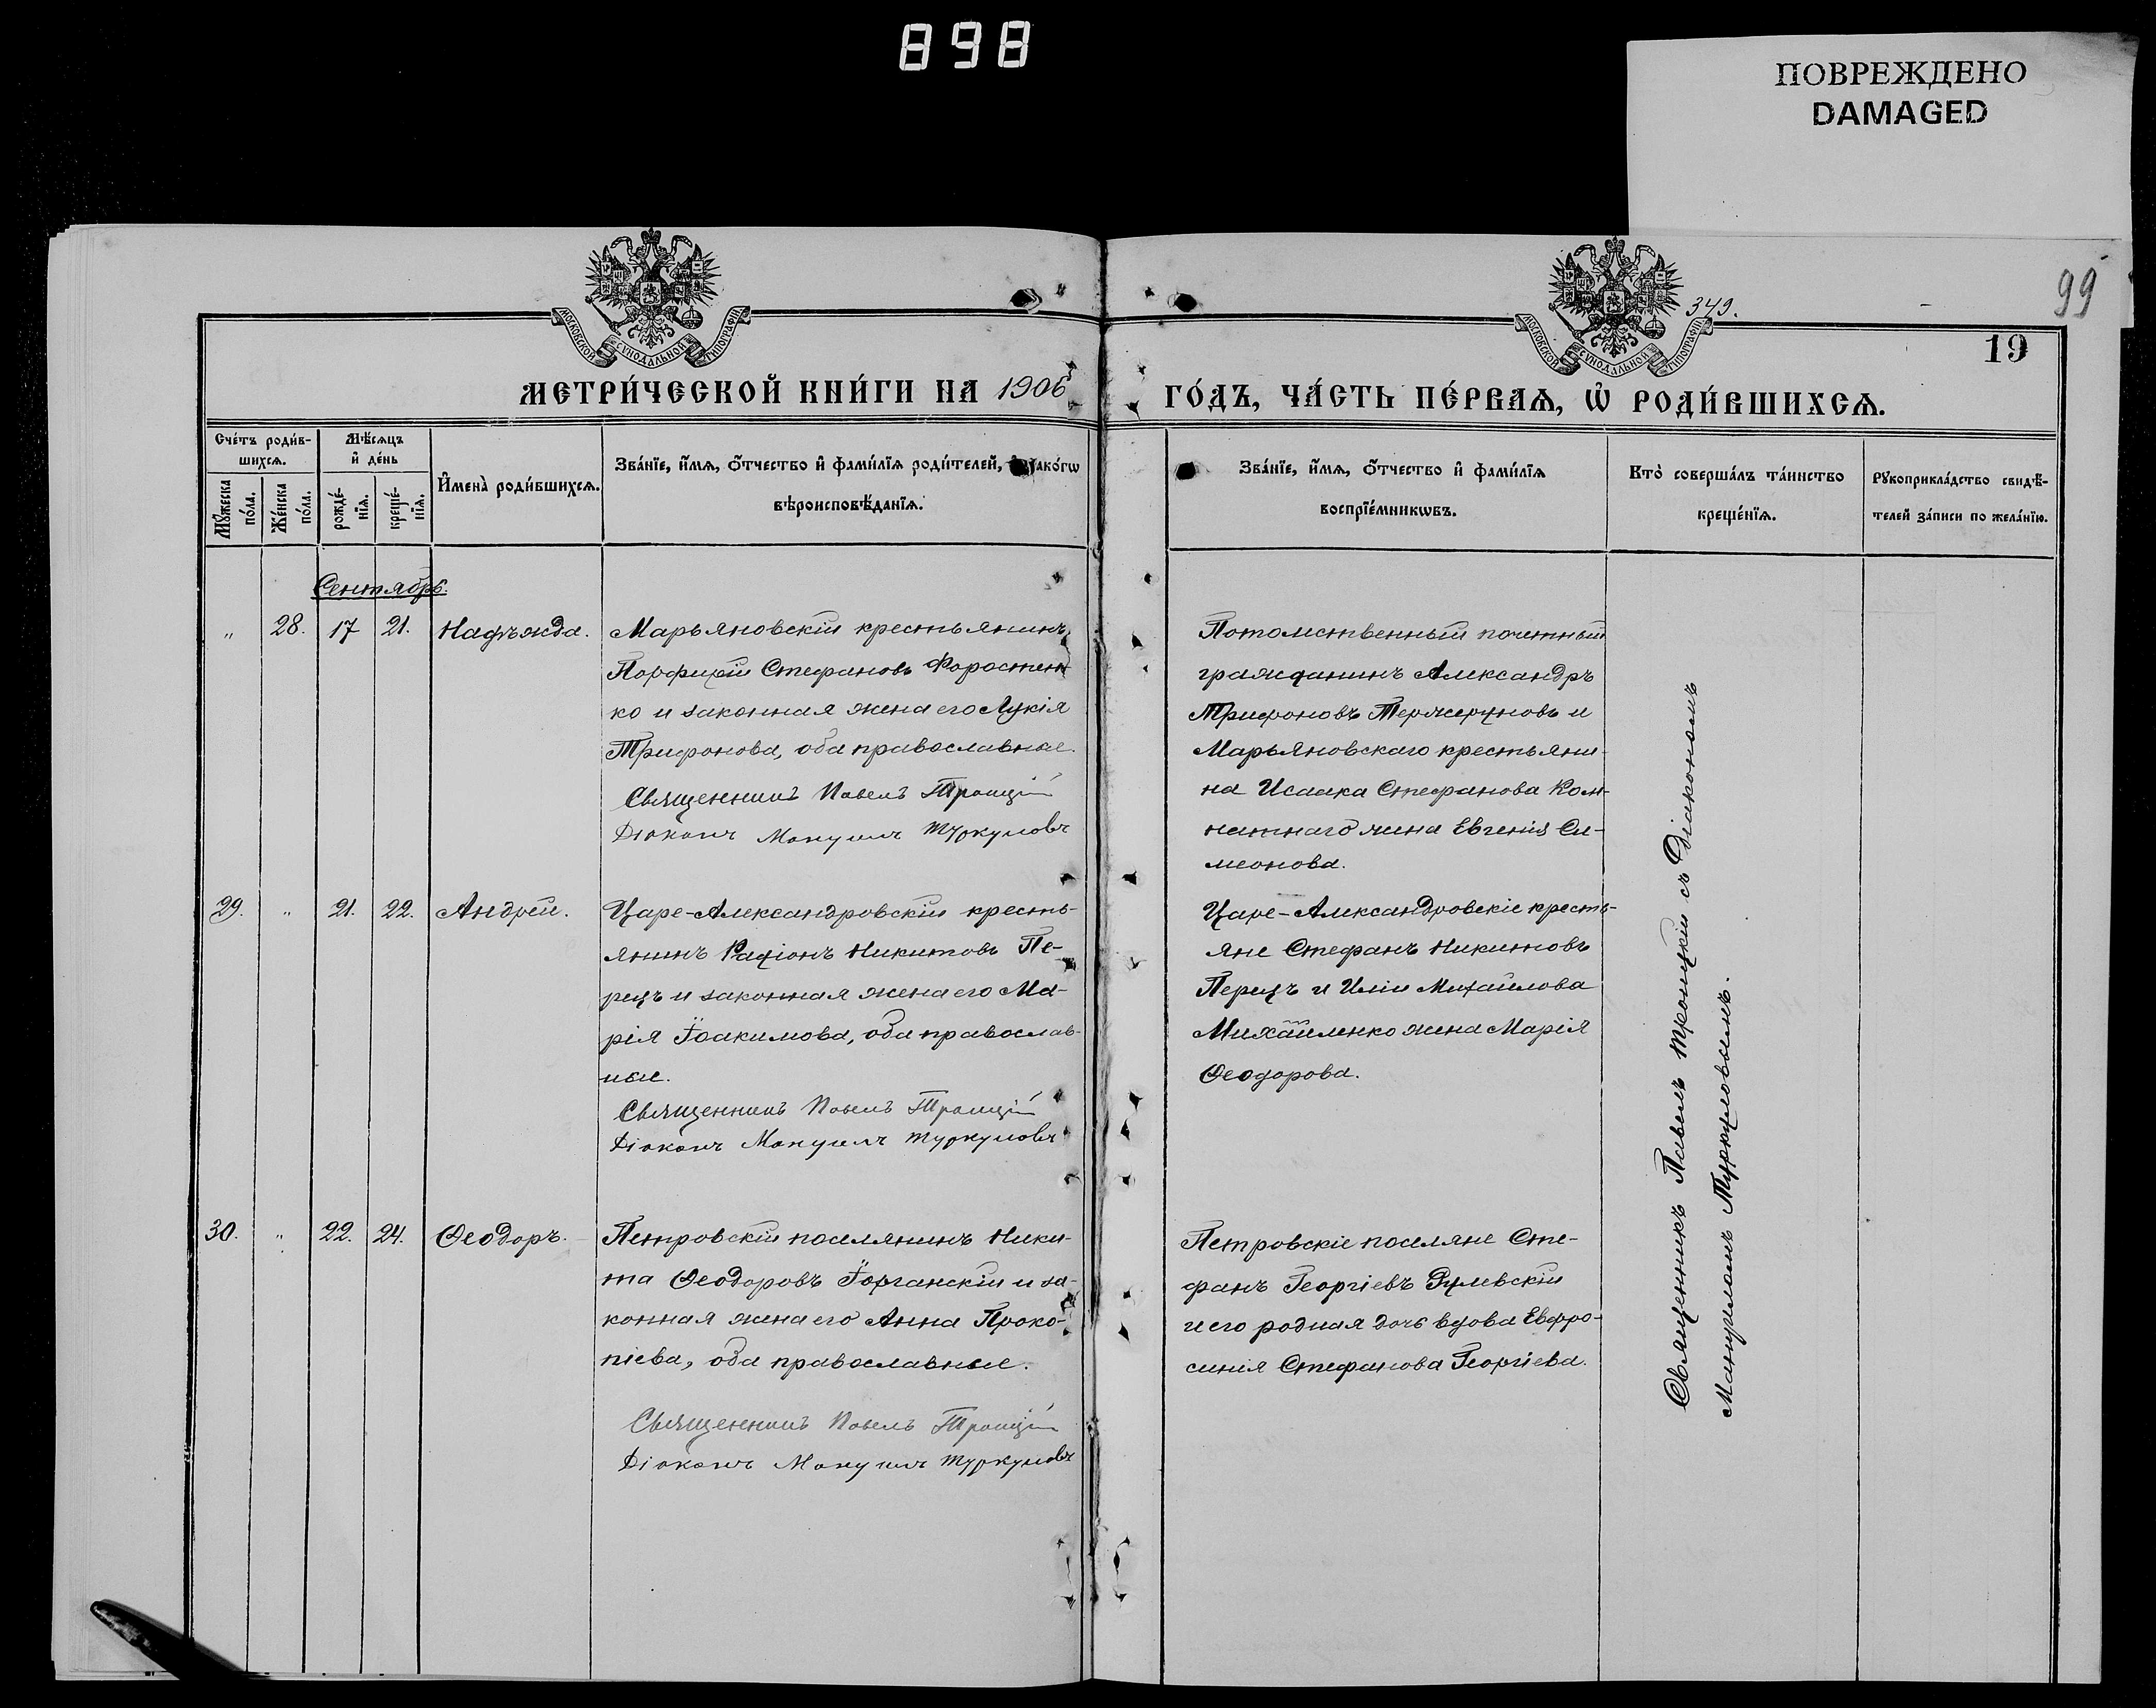 898
ПОВРЕЖДЕНО
DAMAGED
99
349.
19
МОСКОВСКОЙ СУНОДАЛЬНОЙ ТИПОГРАФІИ
МОСКОВСКОЙ СУНОДАЛЬНОЙ ТИПОГРАФІИ
МЕТРИ́ЧЕСКОЙ КНИ́ГИ НА 1906
ГО́ДЪ, ЧА́СТЬ ПЕ́РВАЯ, Ѡ҆ РОДИ́ВШИХСѦ.
Сче́тъ роди́в-
шихсѧ.
Мꙋ́жеска
по́ла.
Же́нска
по́ла.
Мѣ́сѧцъ
и҆ де́нь
рожде́-
нїѧ.
креще́-
нїѧ.
И҆мена̀ роди́вшихсѧ.
Зва́нїе, и҆́мѧ, ѻ҆́тчество и҆ фами́лїѧ роди́телей, и҆ како́гѡ
вѣроисповѣ́данїѧ.
Зва́нїе, и҆́мѧ, ѻ҆́тчество и҆ фами́лїѧ
воспрїе́мникѡвъ.
Кто̀ соверша́лъ та́инство
креще́нїѧ.
Рꙋкоприкла́дство свидѣ́-
телей за́писи по жела́нїю.
Сентябрь.
„ 28. 17 21. Надѣжда.
Марьяновскій крестьянинъ
Порфирій Стефановъ Форостен
ко и законная жена его Лукія
Трифонова, оба православные.
Священникъ Павелъ Троицкій
Діаконъ Мануилъ Туркуловъ
Потомственный почетный
гражданинъ Александръ
Трифоновъ и
Марьяновскаго крестьяни-
на Исаака Стефанова Ком-
натнаго жена Евгенія Си-
меонова.
29. „ 21. 22. Андрей.
Царе-Александровскій кресть-
янинъ Радіонъ Никитовъ Пе-
рецъ и законная жена его Ма-
рія Іоакимова, оба православ-
ные.
Священникъ Павелъ Троицкій
Діаконъ Мануилъ Туркуловъ
Царе-Александровскіе кресть-
яне Стефанъ Никитовъ
Перецъ и Иліи Михайлова
Михайленко жена Марія
Ѳеодорова.
30. „ 22. 24. Ѳеодоръ.
Петровскій поселянинъ Ники-
та Ѳеодоровъ Іорганскій и за-
конная жена его Анна Проко-
піева, оба православные.
Священникъ Павелъ Троицкій
Діаконъ Мануилъ Туркуловъ
Петровскіе поселяне Сте-
фанъ Георгіевъ
и его родная дочь вдова Евфро-
синія Стефанова Георгіева.
Священникъ Павелъ Троицкій съ Діакономъ
Мануиломъ Туркуловымъ.